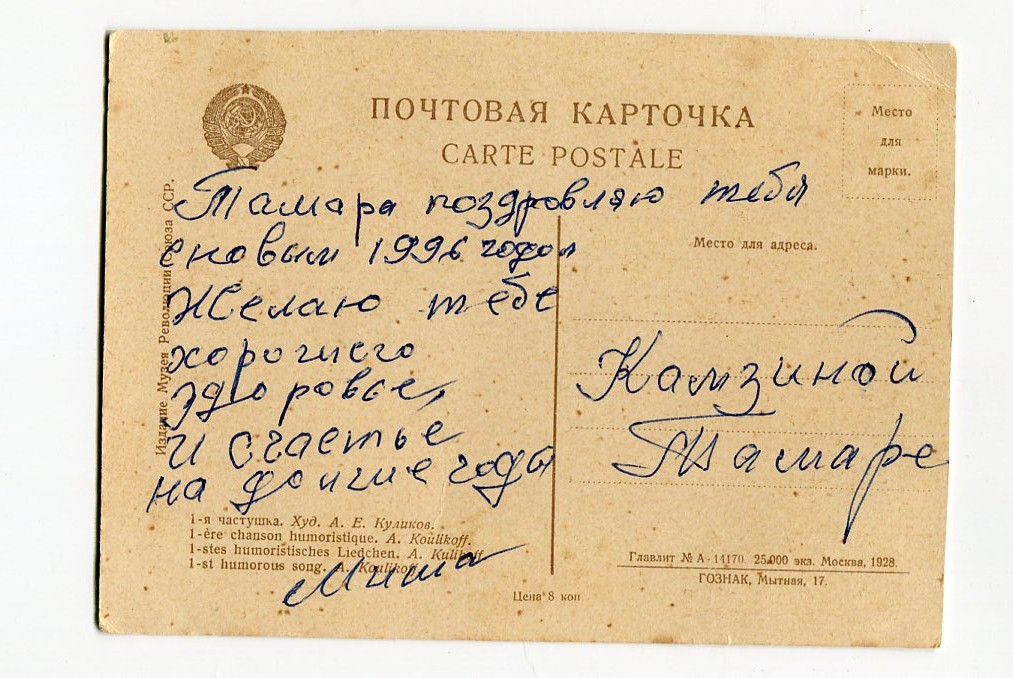 ПОЧТОВАЯ КАРТОЧКА
CARTE POSTALE
Место
для
марки.
Издание Музея Революции Союза ССР.
Тамара поздровляю тебя
сновым 1996 годом
Желаю тебе
хорошего
здоровье,
и счастье
на долгие годы
Миша
Место для адреса.
Камзиной
Тамаре
1-я частушка. Худ. А. Е. Куликов.
1-ère chanson humoristique. A. Koulikoff.
1-stes humoristisches Liedchen. A. Kulikoff
1-st humorous song. A. Koulikoff
Цена 8 коп
Главлит № А-14170. 25.000 экз. Москва, 1928.
ГОЗНАК, Мытная, 17.